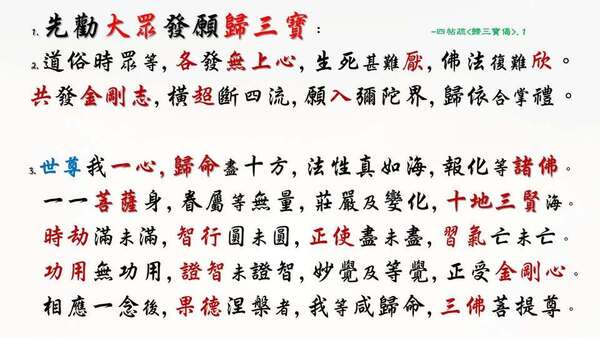 1. 先勸大眾發願歸三寶：
-四帖疏<歸三寶偈>, 1
2. 道俗時眾等, 各發無上心, 生死甚難厭, 佛法復難欣。
共發金剛志, 橫超斷四流, 願入彌陀界, 歸依合掌禮。
3. 世尊我一心, 歸命盡十方, 法性真如海, 報化等諸佛。
一一菩薩身, 眷屬等無量, 莊嚴及變化, 十地三賢海。
時劫滿未滿, 智行圓未圓, 正使盡未盡, 習氣亡未亡。
功用無功用, 證智未證智, 妙覺及等覺, 正受金剛心。
相應一念後, 果德涅槃者, 我等咸歸命, 三佛菩提尊。